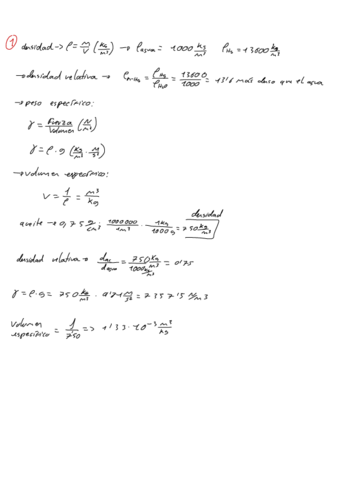 1
densidad → ρ = m/V (kg/m³) → ρ agua = 1000 kg/m³ ρ Hg = 13600 kg/m³
→ densidad relativa → ρ r-Hg = ρ Hg/ρ H₂O = 13600/1000 = 13'6 más denso que el agua
→ peso específico:
γ = Fuerza/Volumen (N/m³)
γ = ρ · g (kg/m³ · m/s²)
→ volumen específico:
v = 1/ρ = m³/kg
densidad
aceite → 0,75 g/cm³ · 1000000/1m³ · 1kg/1000g = 750 kg/m³
densidad relativa → dac/dagua = 750 kg/m³/1000 kg/m³ = 0'75
γ = ρ · g = 750 kg/m³ · 9'81 m/s² = 7357'5 N/m3
Volumen específico = 1/750 => 1'33 · 10⁻³ m³/kg